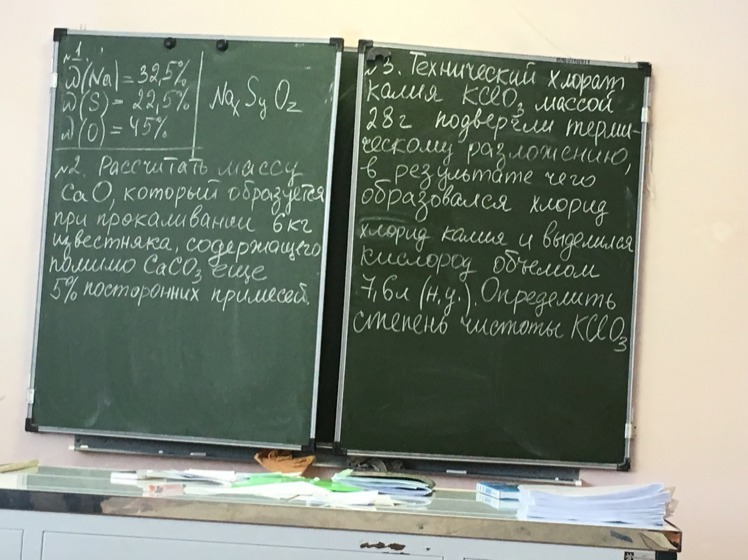 №1.
ω(Na) = 32,5%
ω(S) = 22,5%
ω(O) = 45%
NaxSyOz
№2. Рассчитать массу
CaO, который образуется
при прокаливании 6 кг
известняка, содержащего
помимо CaCO3 еще
5% посторонних примесей.
№3. Технический хлорат
калия KClO3 массой
28г подвергли терми-
ческому разложению,
в результате чего
образовался хлорид
хлорид калия и выделился
кислород объемом
7,6л (н.у.). Определить
степень чистоты KClO3